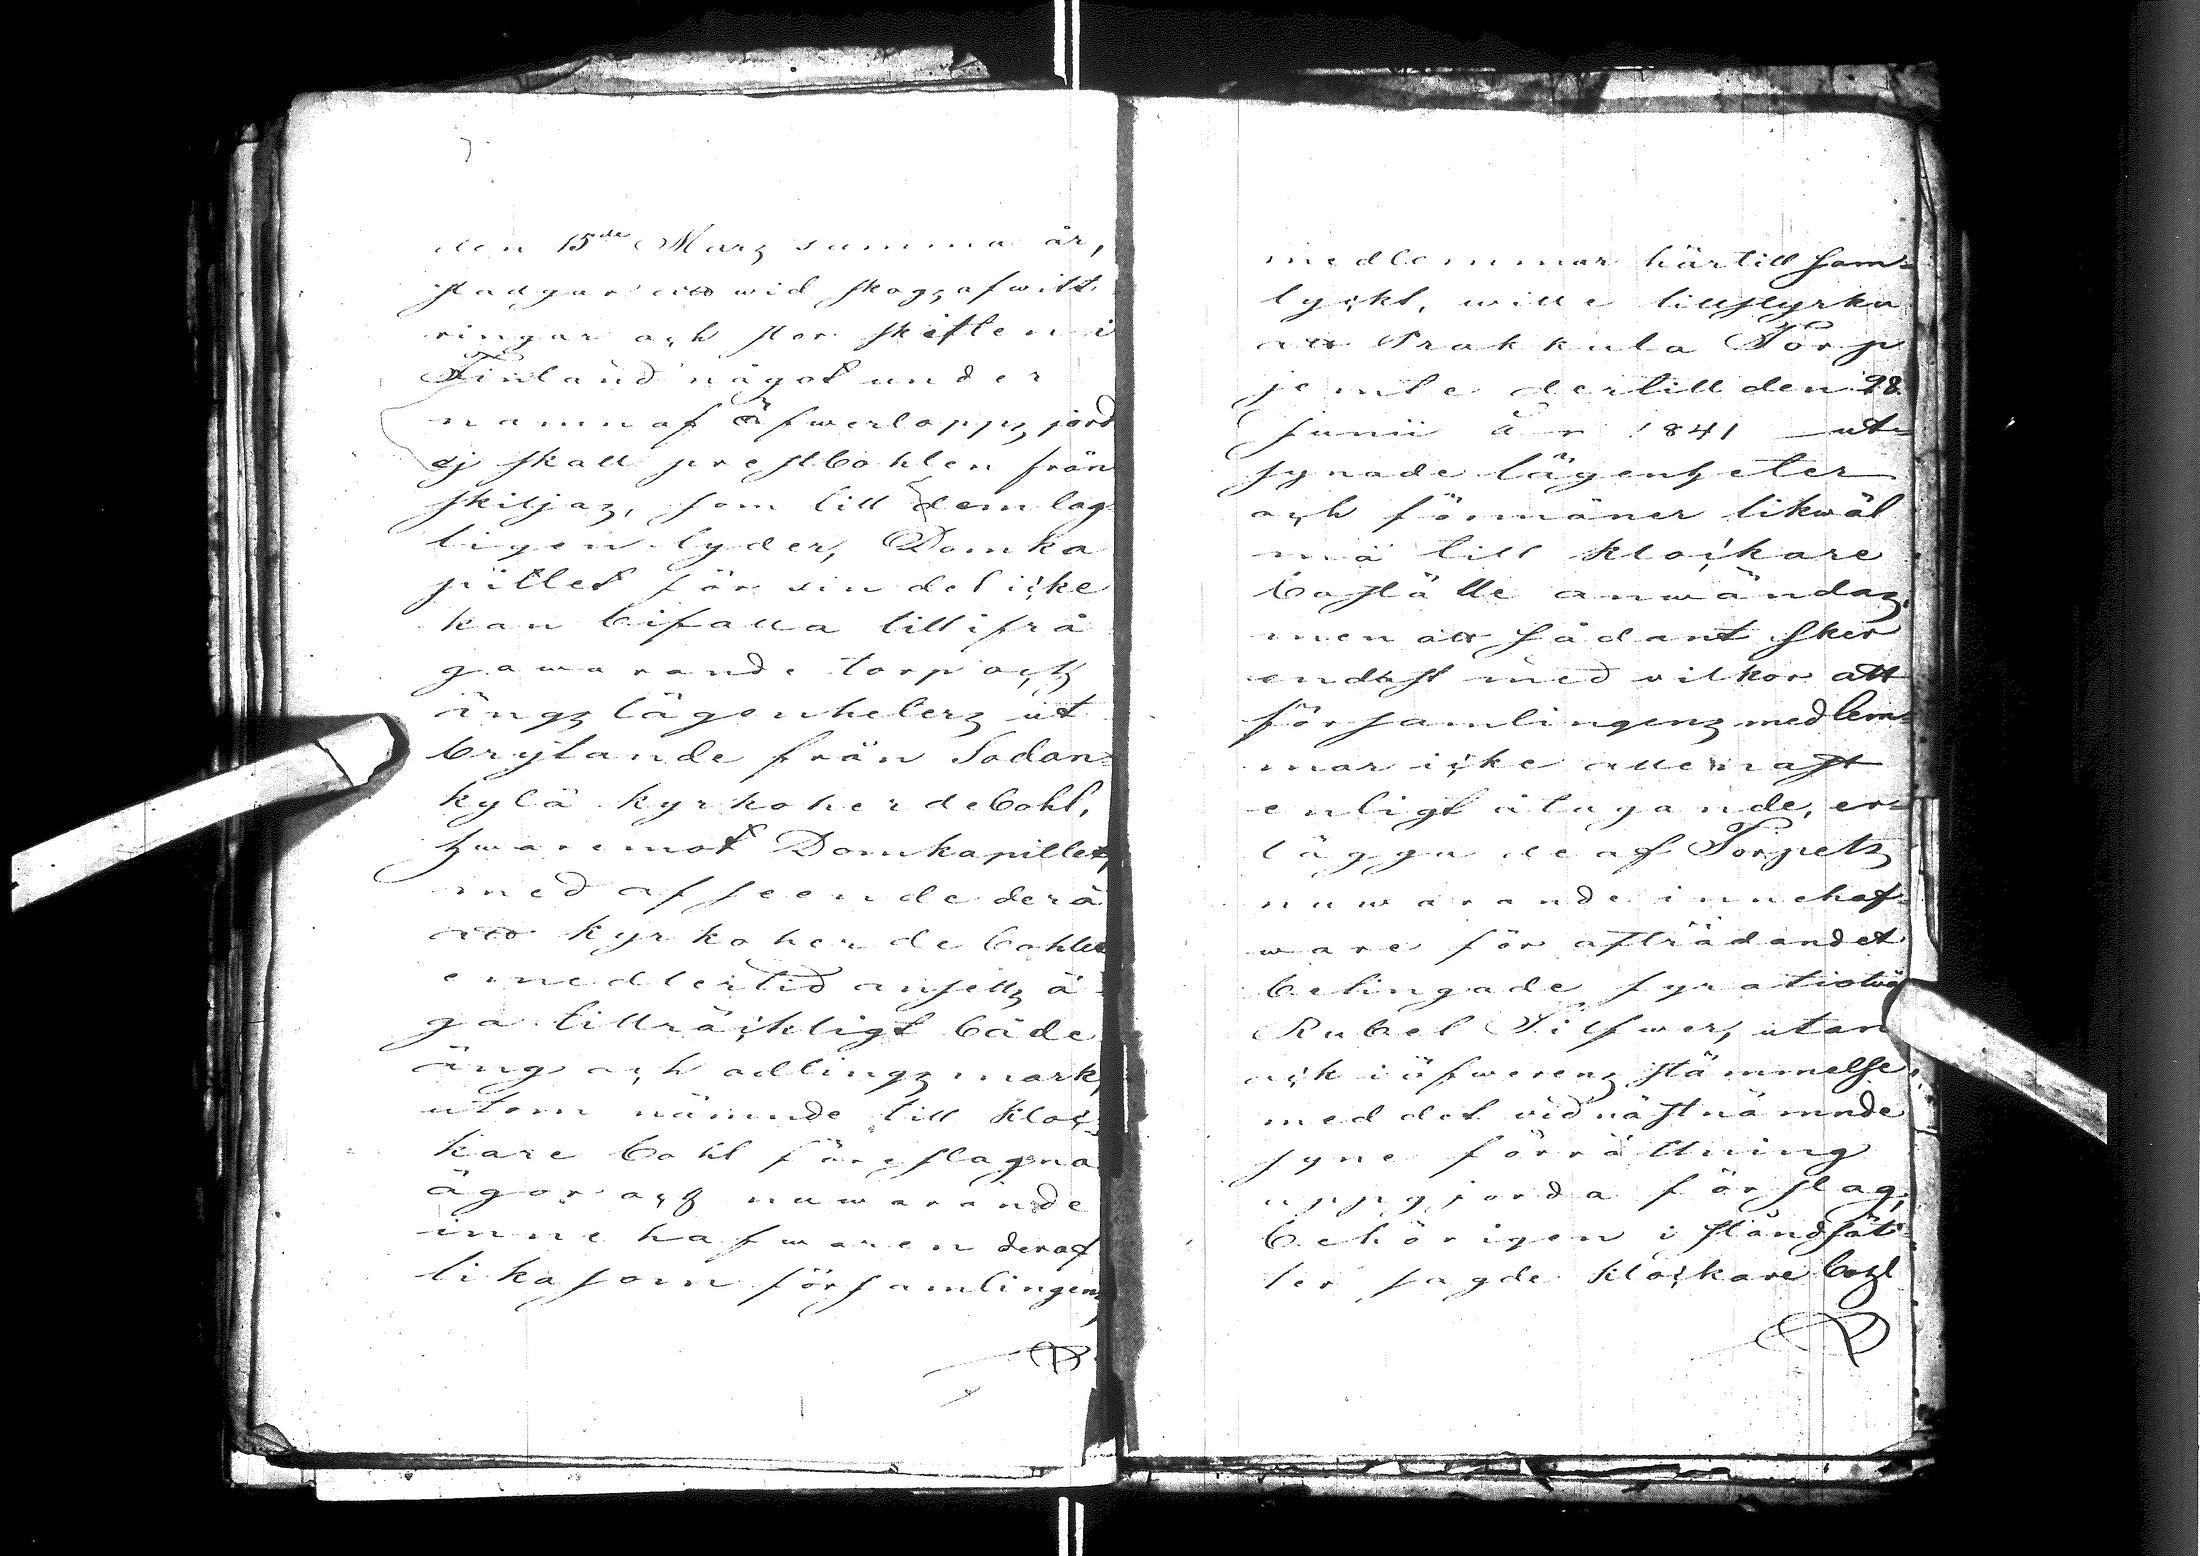 den 15de Marz samma år,
stadgar att wid skogs afwitt
ringar och stor skiften i
Finland något under
namn af öfwerlopps jord
ej skall prestbohlen från
skiljas, som till dem lag
ligen lyder, Domka
pitlet för sin del icke
kan bifalla tillifrå
gawarande torp och
ängs lägenheters ut
brytande från Sodan=
kylä kyrkoherdebohl,
hwaremot Domkapitlet,
med afseende derå
att kyrkoherdebohlet
emedlertid ansetts ä
ga tillräckligt både
äng och odlings mark,
utom nämnde till Kloc=
kare bohl föreslagna
ägor och nuwarande
innehafwaren deraf
likasom församlingens
medlemmar härtill sam=
tyckt, wille tillstyrka
att Prakkula Torp
jemte dertill den 28
Junii År 1841 ut=
synade lägenheter
och förmåner likwäl
må till klockare
boställe användas,
men att sådant sker
endast med vilkor att
församlingens medlem=
mar icke allenast
enligt åtagande, er=
lägga de af Torpets
nuwarande innehaf=
ware för afträdandet
betingade fyratiotvå
Rubel Silfwer, utan
ock i öfwerensstämmelse,
med det vid nästnämnde
syne förrättning
uppgjorda förslag,
behörigen i ståndsät=
ter sagde klockare bohl